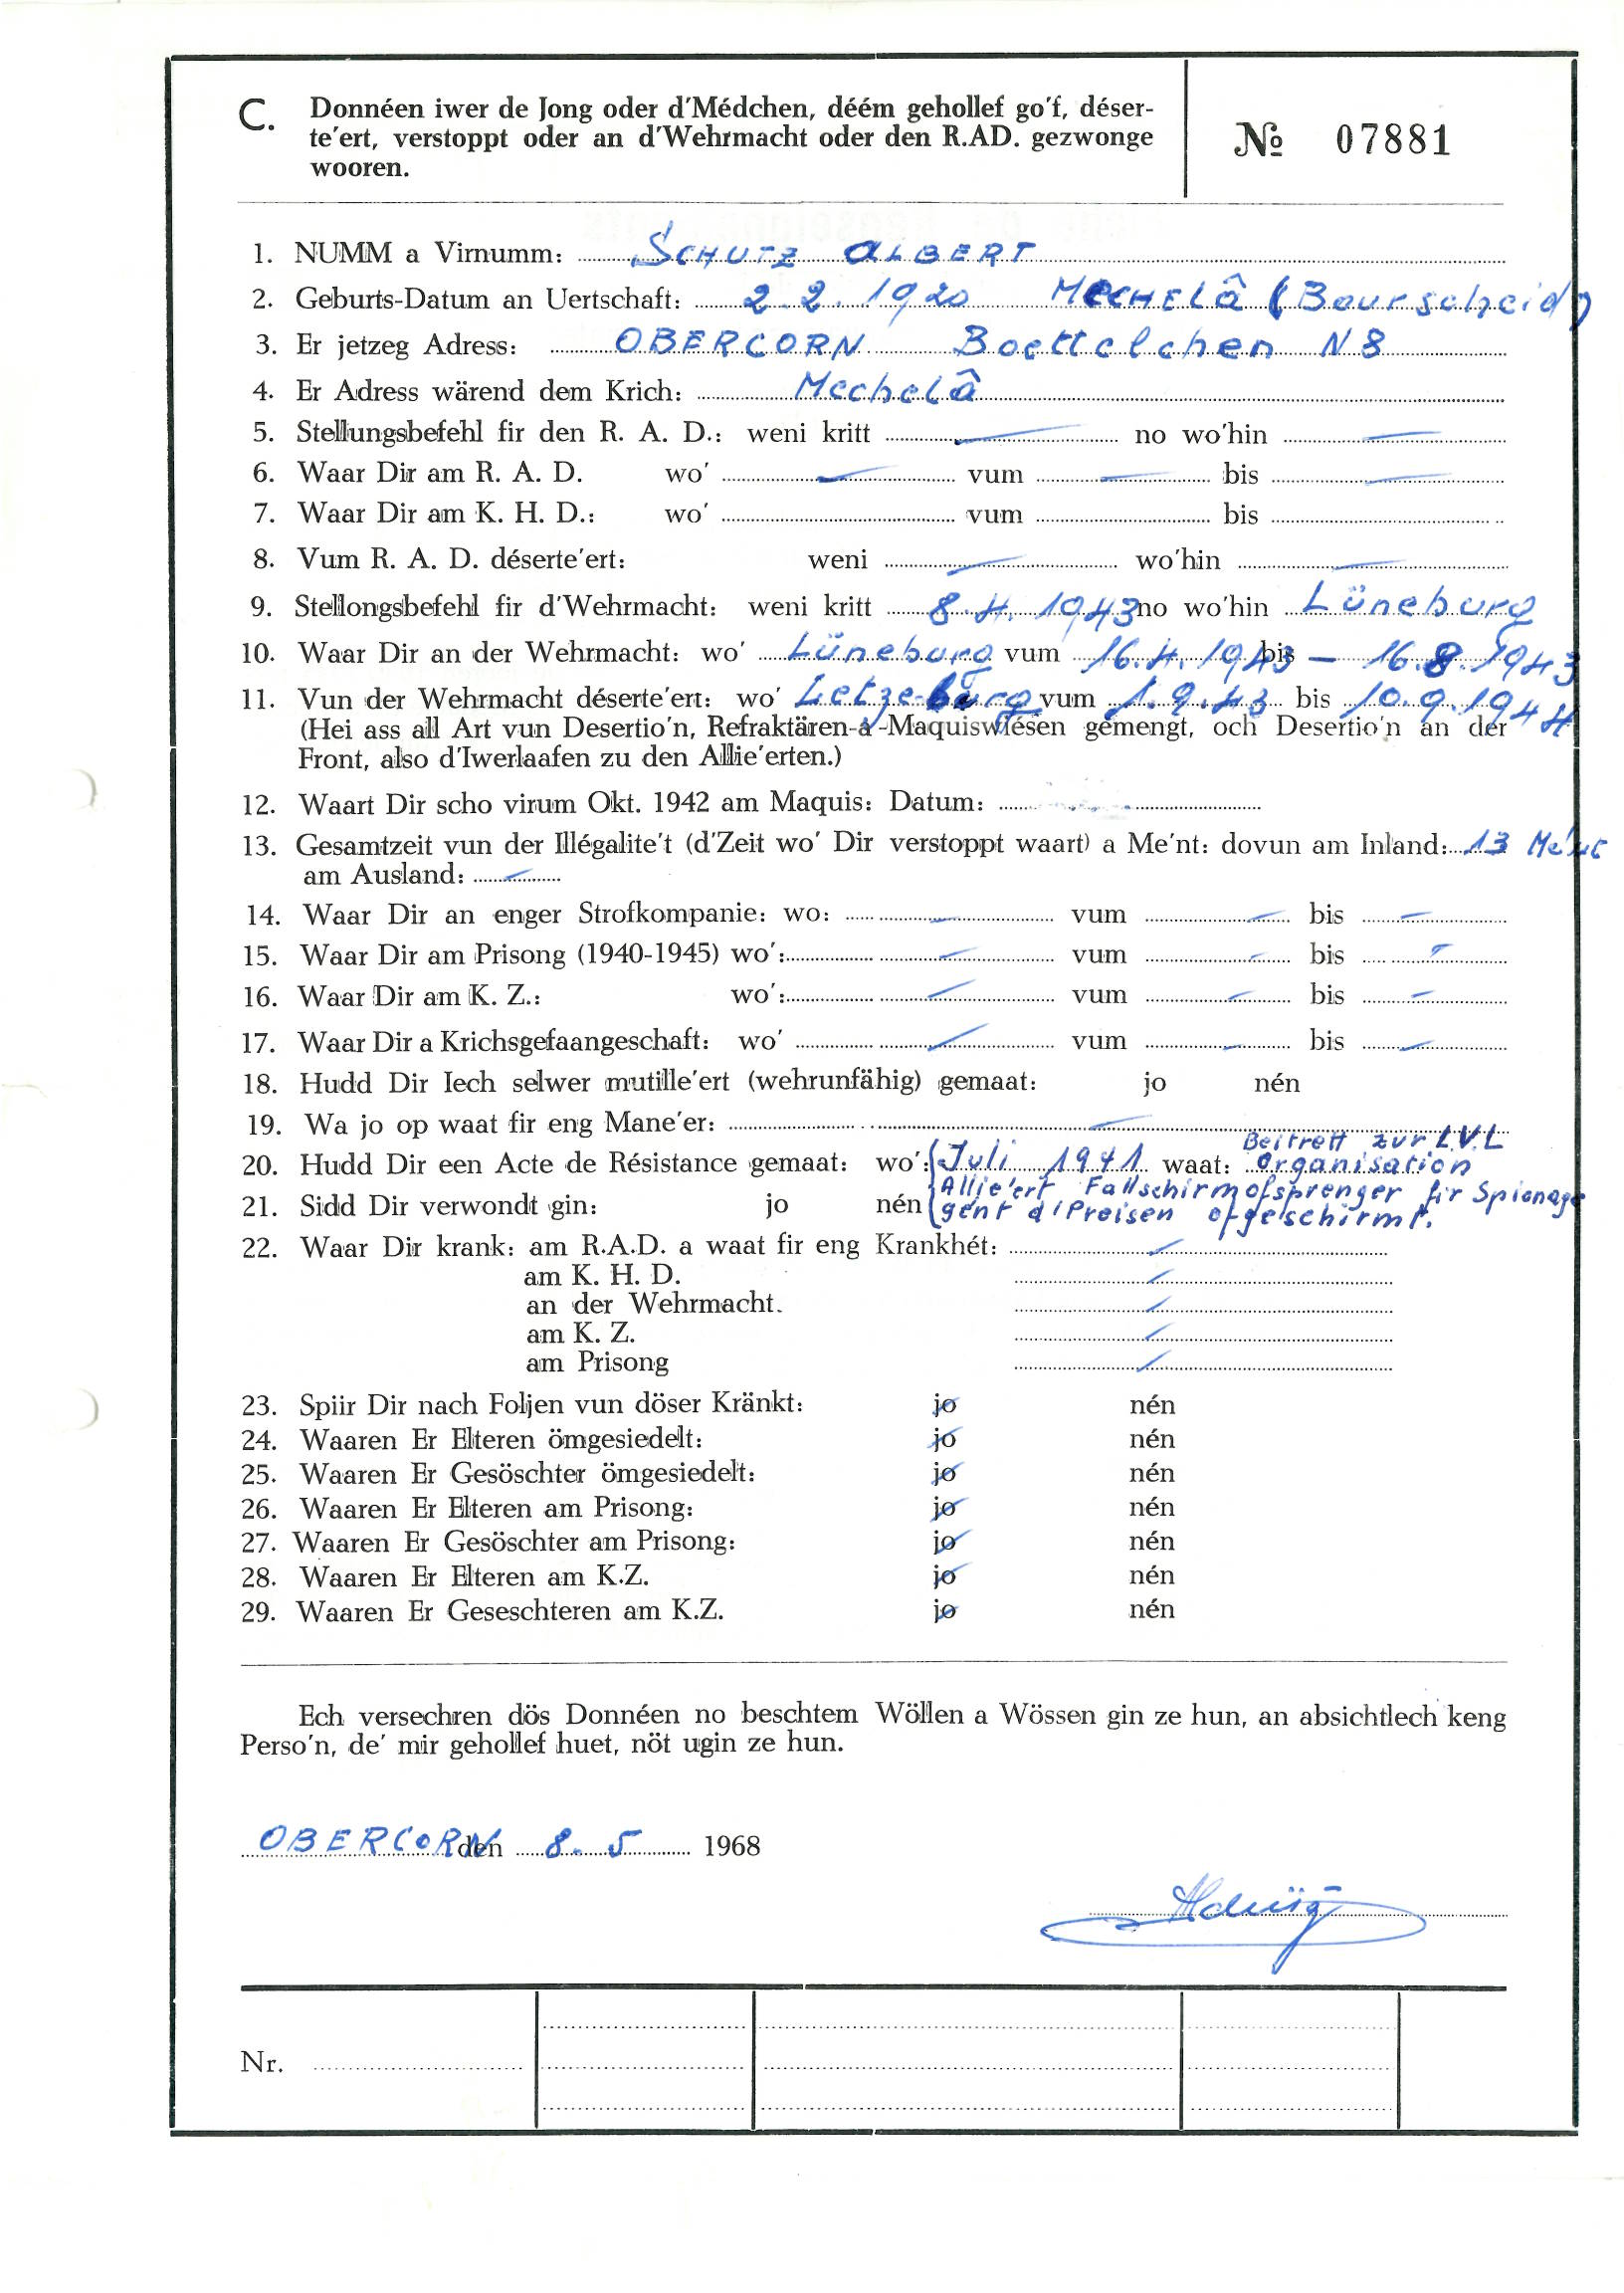 C. Donnéen iwer de Jong oder d'Médchen, déém gehollef go'f, déser-
te'ert, verstoppt oder an d'Wehrmacht oder den R.AD. gezwonge
wooren.
№ 07881
1. NUMM a Virnumm: SCHUTZ ALBERT
2. Geburts-Datum an Uertschaft: 2.2.1920 MECHELÂ (Bourscheid)
3. Er jetzeg Adress: OBERCORN Boettelchen N 8
4. Er Adress wärend dem Krich: Mechelâ
5. Stellungsbefehl fir den R. A. D.: weni kritt — no wo'hin —
6. Waar Dir am R. A. D. wo' — vum — bis —
7. Waar Dir am K. H. D.: wo' vum bis
8. Vum R. A. D. déserte'ert: weni — wo'hin —
9. Stellongsbefehl fir d'Wehrmacht: weni kritt 8.4.1943 no wo'hin Lüneburg
10. Waar Dir an der Wehrmacht: wo' Lüneburg vum 16.4.1943 bis — 16.8.1943
11. Vun der Wehrmacht déserte'ert: wo' Letzeburg vum 1.9.43 bis 10.9.1944
(Hei ass all Art vun Desertio'n, Refraktären-a-Maquiswiésen gemengt, och Desertio'n an der
Front, also d'Iwerlaafen zu den Allie'erten.)
12. Waart Dir scho virum Okt. 1942 am Maquis: Datum:
13. Gesamtzeit vun der Illégalite't (d'Zeit wo' Dir verstoppt waart) a Me'nt: dovun am Inland: 13 Me'nt
am Ausland: —
14. Waar Dir an enger Strofkompanie: wo: — vum — bis —
15. Waar Dir am Prisong (1940-1945) wo': — vum — bis —
16. Waar Dir am K. Z.: wo': — vum — bis —
17. Waar Dir a Krichsgefaangeschaft: wo' — vum — bis —
18. Hudd Dir Iech selwer mutille'ert (wehrunfähig) gemaat: jo nén
19. Wa jo op waat fir eng Mane'er: —
Beitrett zur L.V.L
20. Hudd Dir een Acte de Résistance gemaat: wo': (Juli 1941 waat: Organisation
Allie'ert Fallschirmofsprenger fir Spionage
21. Sidd Dir verwondt gin: jo nén (gént d'Preisen ofgeschirmt.
22. Waar Dir krank: am R.A.D. a waat fir eng Krankhét: —
am K. H. D. —
an der Wehrmacht. —
am K. Z. —
am Prisong —
23. Spiir Dir nach Foljen vun döser Kränkt: jo nén
24. Waaren Er Elteren ömgesiedelt: jo nén
25. Waaren Er Gesöschter ömgesiedelt: jo nén
26. Waaren Er Elteren am Prisong: jo nén
27. Waaren Er Gesöschter am Prisong: jo nén
28. Waaren Er Elteren am K.Z. jo nén
29. Waaren Er Geseschteren am K.Z. jo nén
Ech versechren dös Donnéen no beschtem Wöllen a Wössen gin ze hun, an absichtlech keng
Perso'n, de' mir gehollef huet, nöt ugin ze hun.
OBERCORN den 8. 5 1968
Nr.